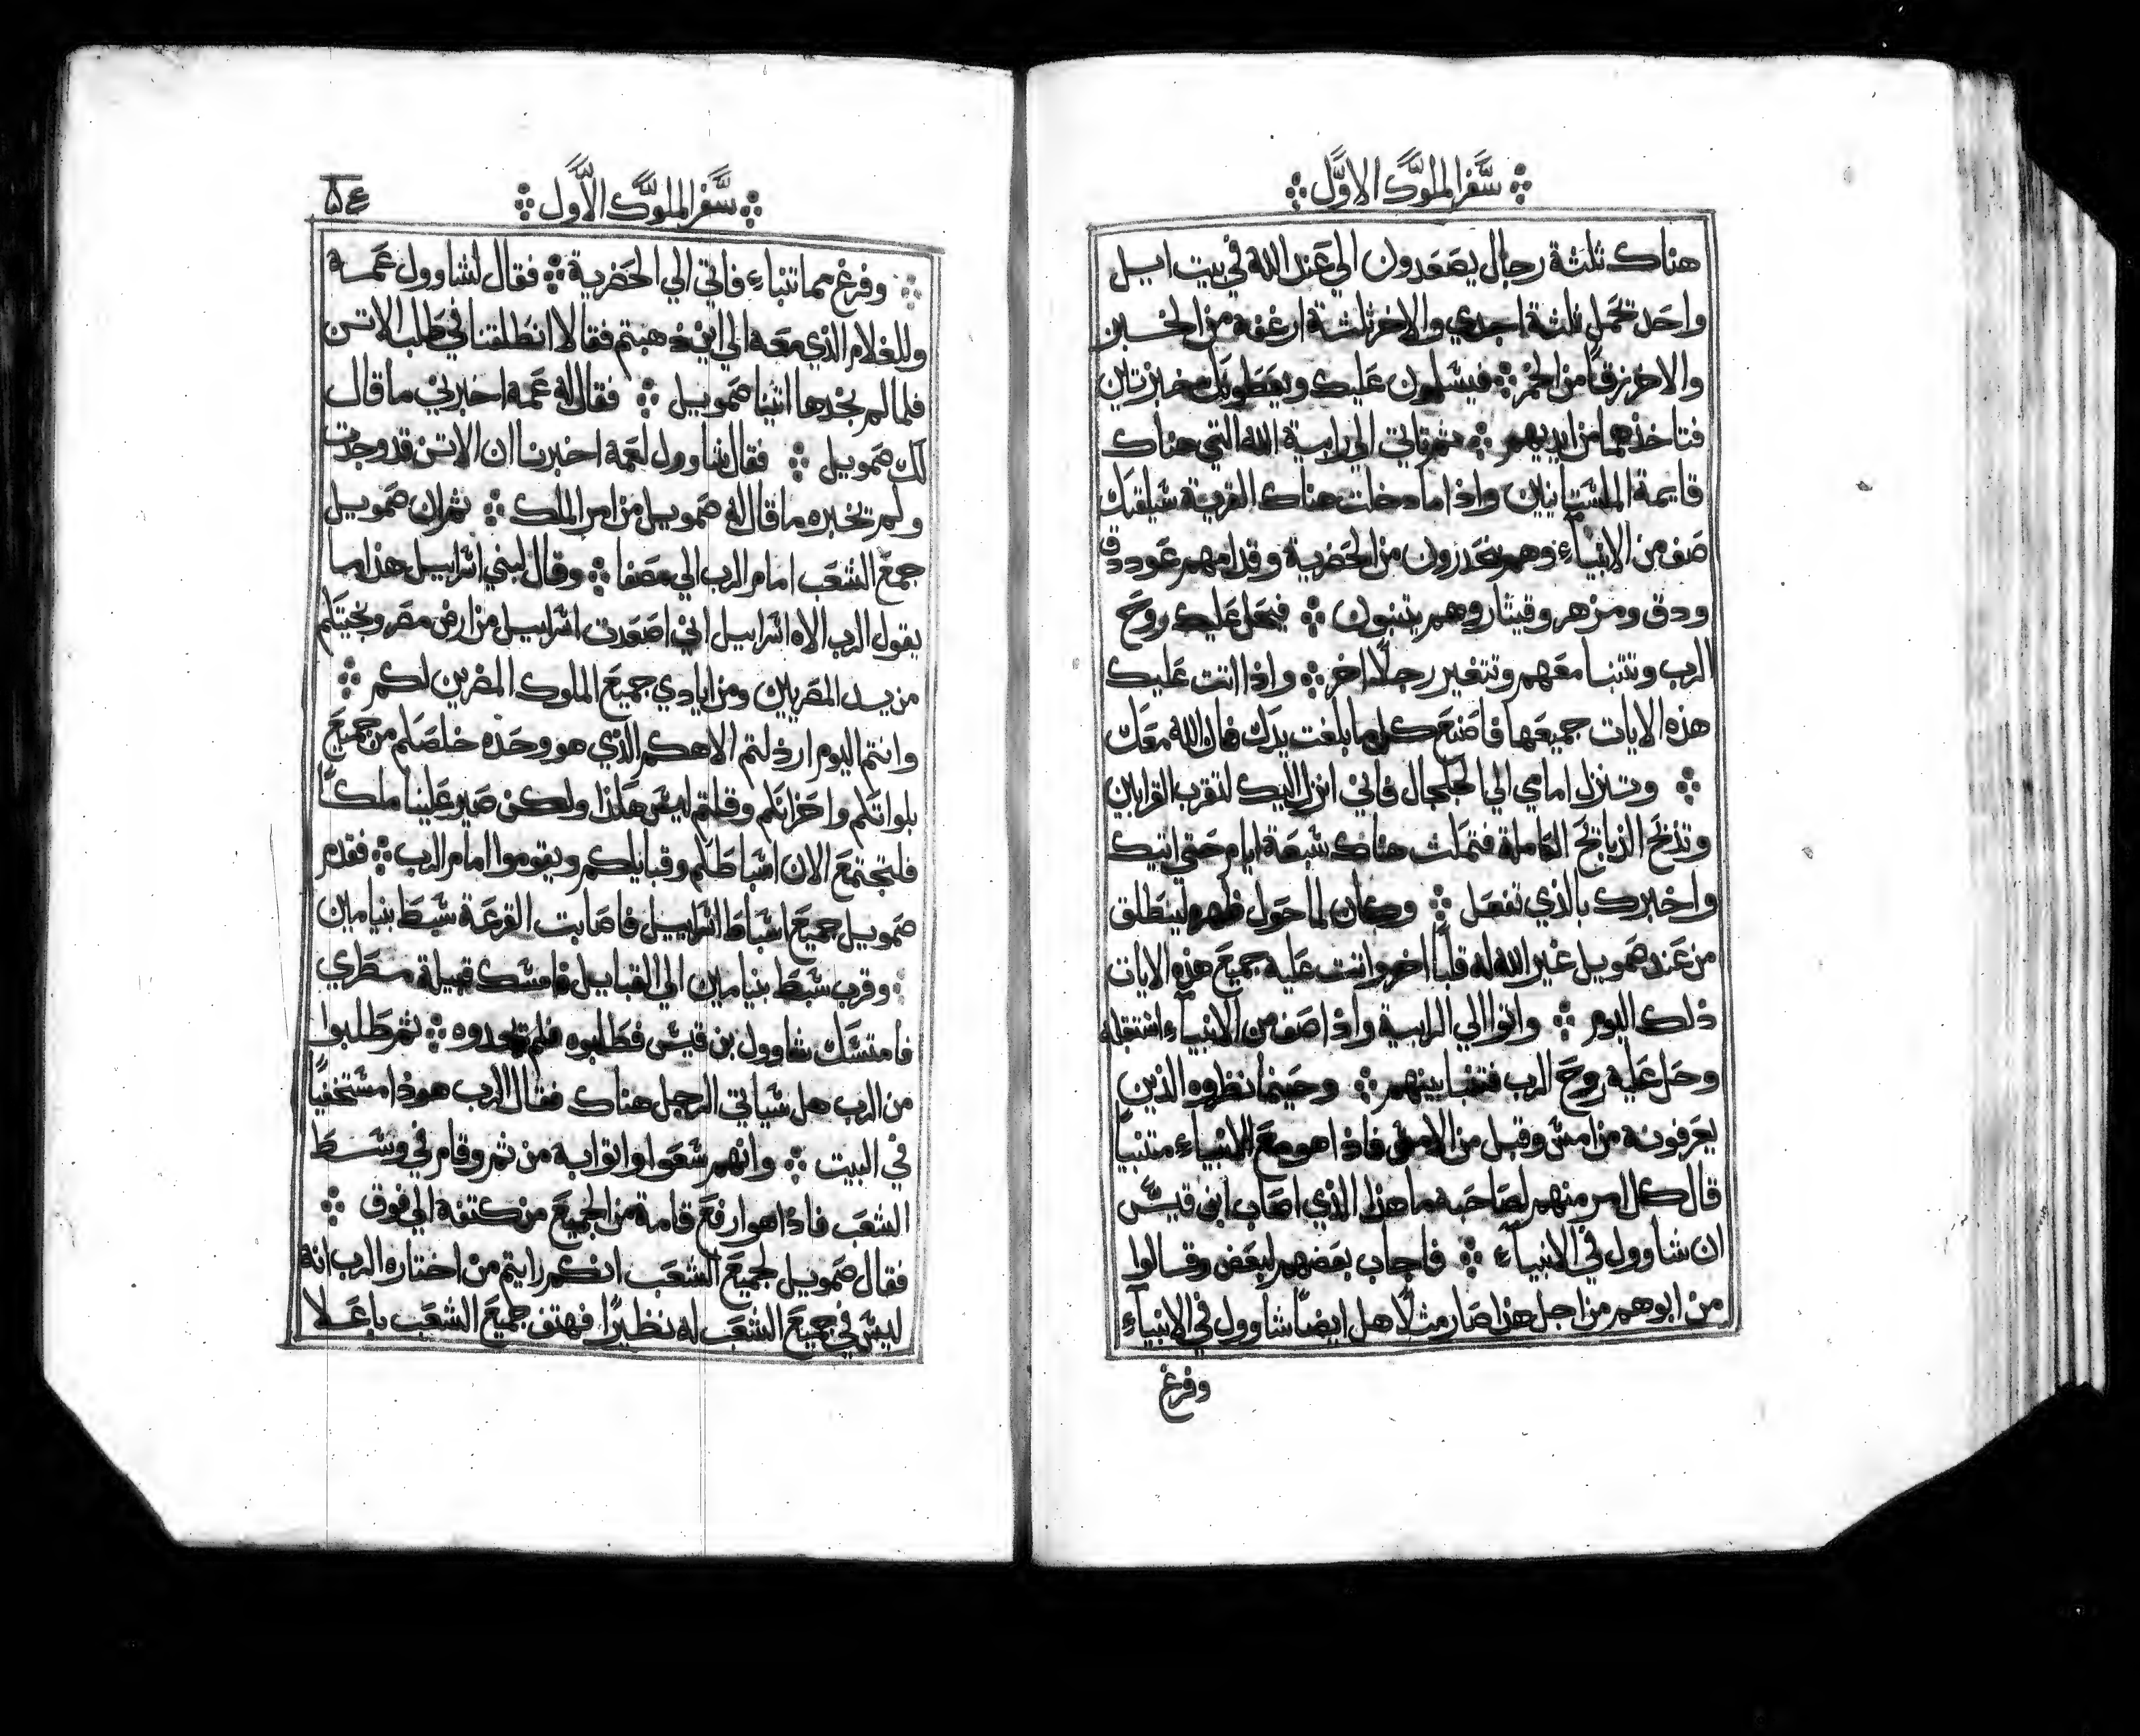 سفر الملوك الاول
هناك ثلثة رجال يصعدون الي عند الله في بيت ايل
واحد تحمل ثلثة اجدي والاخر ثلثة ارغفة من الخبز
والاخر زقا من الخمر ፨ فيسلمون عليك ويعطونك خبزتين
فتاخذهما من ايديهم ፨ ثم تاتي الي رابية الله التي هناك
قايمة الفلستانيين واذا ما دخلت هناك القرية سيلقيك
صف من الانبياء وهم يحدرون من الحضرية وقدامهم عود دق
ودق ومزهر وقيثار وهم يتنبون ፨ فيحل عليك روح
الرب وتتنبا معهم وتتغير رجلا اخر ፨ واذا اتت عليك
هذه الايات جميعها فاصنع كل ما بلغت يدك فان الله معك
፨ وتنزل امامي الي الجلجال فاني انزل اليك لتقرب القرابين
وتذبح الذبايح الكاملة فتمكث هناك سبعة ايام حتي اتيك
واخبرك بالذي تفعل ፨ وكان لما حول ظهره لينطلق
من عند صمويل غير الله له قلبا اخر واتت عليه جميع هذه الايات
ذلك اليوم ፨ واتوا الي الرابية واذا صف من الانبياء استقبله
وحل عليه روح الرب فتنبا بينهم ፨ وحينما نظروه الذين
يعرفونه من امس وقبل من الامس فاذا هو مع الانبياء متنبيا
قال كل امر منهم لصاحبه ما هذا الذي اصاب ابن قيس
ان شاوول في الانبياء ፨ فاجاب بعضهم لبعض وقالوا
من ابوهم من اجل هذا صار مثلا هل ايضا شاوول في الانبياء
وفرغ
سفر الملوك الاول
፨ وفرغ مما تنباء فاتي الي الحضرية ፨ فقال لشاوول عمه
وللغلام الذي معه الي اين ذهبتم فقالا انطلقنا في طلب الاتن
فلما لم نجدها اتينا صمويل ፨ فقال له عمه اخبرني ما قال
لك صمويل ፨ فقال شاوول لعمه اخبرنا ان الاتن قد وجدت
ولم تخبره ما قال له صمويل من امر الملك ፨ ثم ان صمويل
جمع الشعب امام الرب الي مصفا ፨ وقال لبني اسراييل هذا ما
يقول الرب الاه اسراييل اني اصعدت اسراييل من ارض مصر ونجيتكم
من يد المصريين ومن ايادي جميع الملوك المضرين لكم ፨
وانتم اليوم ارذلتم الاهكم الذي هو وحده خلصكم من جميع
بلواتكم واحزانكم وقلتم ليس هكذا ولكن صير علينا ملكا
فلتجتمع الان اسباطكم وقبايلكم ويقوموا امام الرب ፨ فقدم
صمويل جميع اسباط اسراييل فاصابت القرعة سبط بنيامين
፨ وقرب سبط بنيامين الي القبايل فامسك قبيلة مطري
فامتسك شاوول بن قيس فطلبوه فلم يجدوه ፨ ثم طلبوا
من الرب هل سياتي الرجل هناك فقال الرب هوذا مستخفيا
في البيت ፨ وانهم سعوا واتوا به من ثم وقام في وسط
الشعب فاذا هو ارفع قامة من الجميع من كتفه الي فوق ፨
فقال صمويل لجميع الشعب انكم رايتم من اختاره الرب انه
ليس في جميع الشعب له نظيرا فهتف جميع الشعب باعلا